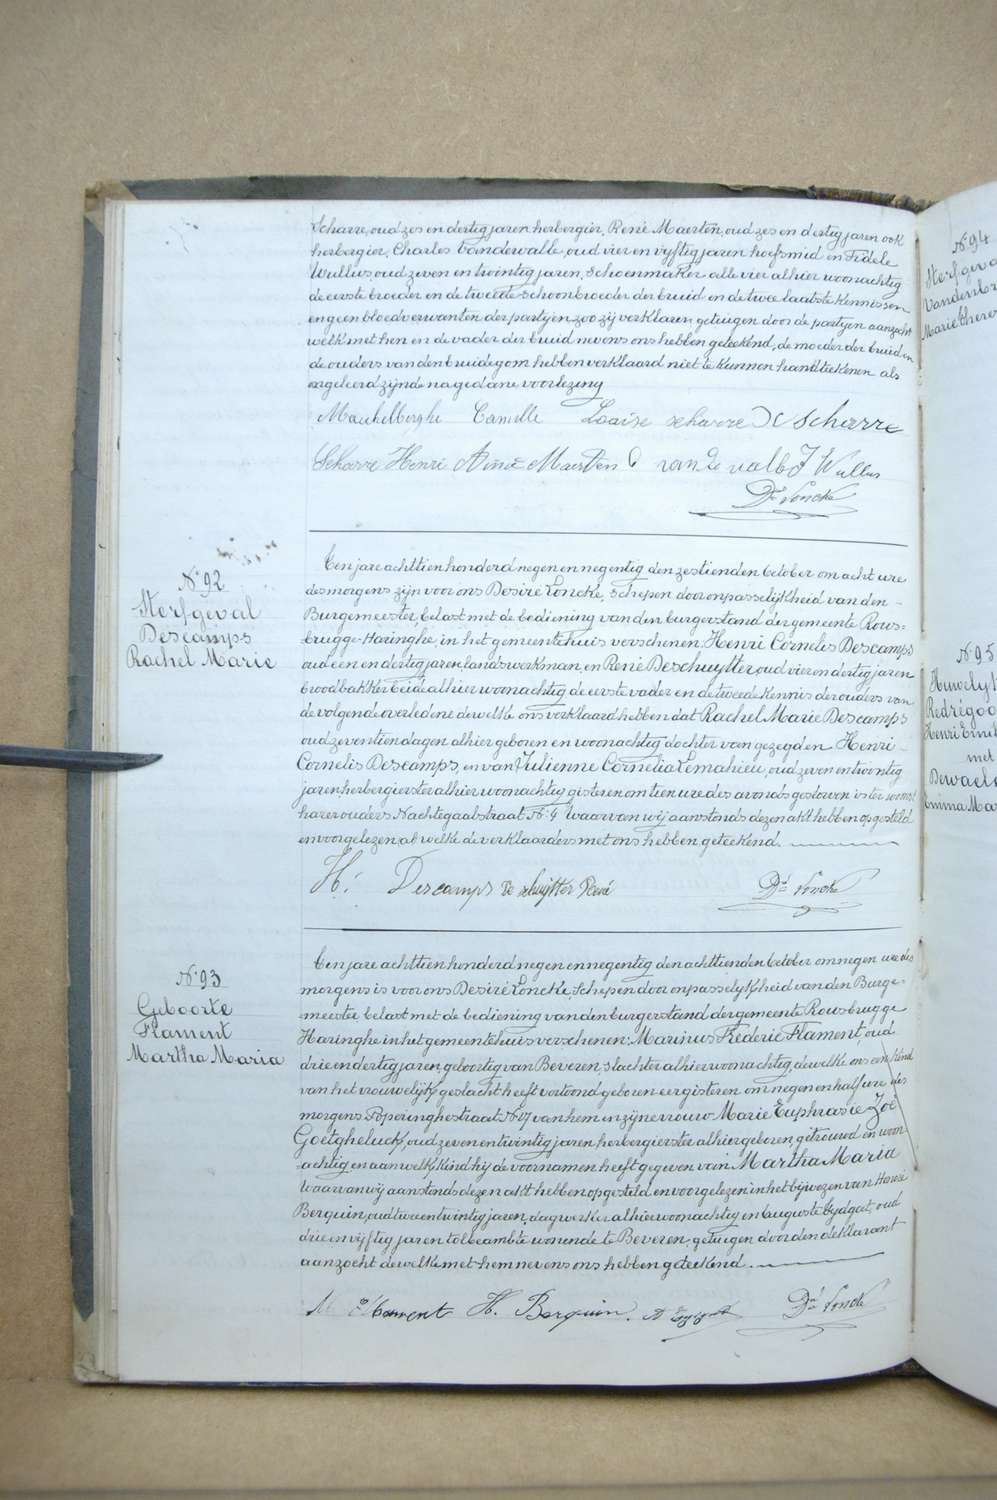 Scharre, oud zes en dertig jaren herbergier, René Maerten, oud zes en dertig jaren ook
herbergier, Charles Vandewalle, oud vier en vyftig jaren hoefsmid en Fidele
Wullus, oud zeven en twintig jaren, schoenmaker alle vier alhier woonachtig
de eerste broeder en de tweede schoonbroeder der bruid en de twee laatste kennissen
en geen bloedverwanten der partyen zoo zij verklaren, getuigen door de partyen aanzocht
welk met hen en de vader der bruid nevens ons hebben geteekend, de moeder der bruid en
de ouders van den bruidegom hebben verklaard niet te kunnen handteekenen als
ongeleerd zijnde na gedane voorlezing
Maekelberghe Camille Louise scharre D C scharre
Scharre Henri Aimé Maerten C vande walle F Wullus
Dré Loncke
N° 92
Sterfgeval
Descamps
Rachel Marie
Een jare achttien honderd negen en negentig den zestienden October om acht ure
des morgens zijn voor ons Desiré Loncke, schepen door onpasselijkheid van den
Burgemeester, belast met de bediening van den burgerstand der gemeente Rous-
brugge-Haringhe, in het gemeentehuis verschenen, Henri Cornelis Descamps
oud een en dertig jaren landswerkman, en René Deschuytter, oud vier en dertig jaren
broodbakker beide alhier woonachtig de eerste vader en de tweede kennis der ouders van
de volgende overledene dewelke ons verklaard hebben dat Rachel Marie Descamps
oud zeventien dagen alhier geboren en woonachtig dochter van gezegden Henri
Cornelis Descamps, en van Julienne Cornelia Lemahieu, oud zeven en twintig
jaren, herbergierster alhier woonachtig gisteren om tien ure des avonds gestorven is ter woonst
harer ouders Nachtegaalstraat N° 4 Waarvan wij aanstonds dezen akt hebben opgesteld
en voorgelezen, al welke de verklaarders met ons hebben geteekend.
H. Descamps De schuytter René Dré Loncke
N° 93
Geboorte
Flament
Martha Maria
Een jare achttien honderd negen en negentig den achttienden October om negen ure des
morgens is voor ons Desiré Loncke, Schepen door onpasselykheid van den Burge-
meester belast met de bediening van den burgerstand der gemeente Rousbrugge
Haringhe in het gemeentehuis verschenen: Marinus Frederic Flament, oud
drie en dertig jaren, geboortig van Beveren, slachter alhier woonachtig, dewelke ons een kind
van het vrouwelijk geslacht heeft vertoond geboren eergisteren om negen en half ure des
morgens Poperinghestraat N° 17 van hem en zijne vrouw Marie Euphrasie Zoë
Goetgheluck, oud zeven en twintig jaren, herbergierster alhier geboren, getrouwd en woon-
achtig en aan welk kind hij de voornamen heeft gegeven van Martha Maria
Waarvan wij aanstonds dezen akt hebben opgesteld en voorgelezen in het bijwezen van Henri
Berquin, oud twee en twintig jaren, dagwerker alhier woonachtig en Auguste, oud
drie en vijftig jaren tolbeambte wonende te Beveren, getuigen door den deklarant
aanzocht dewelke met hem nevens ons hebben geteekend.
M Flament H. Berquin. A Dré Loncke
N° 94
Sterfgeva
Vandenbr
Marie there
N° 95
Huwelyk
Redrégoo
Henri Emil
met
Dewaele
Emma Mar